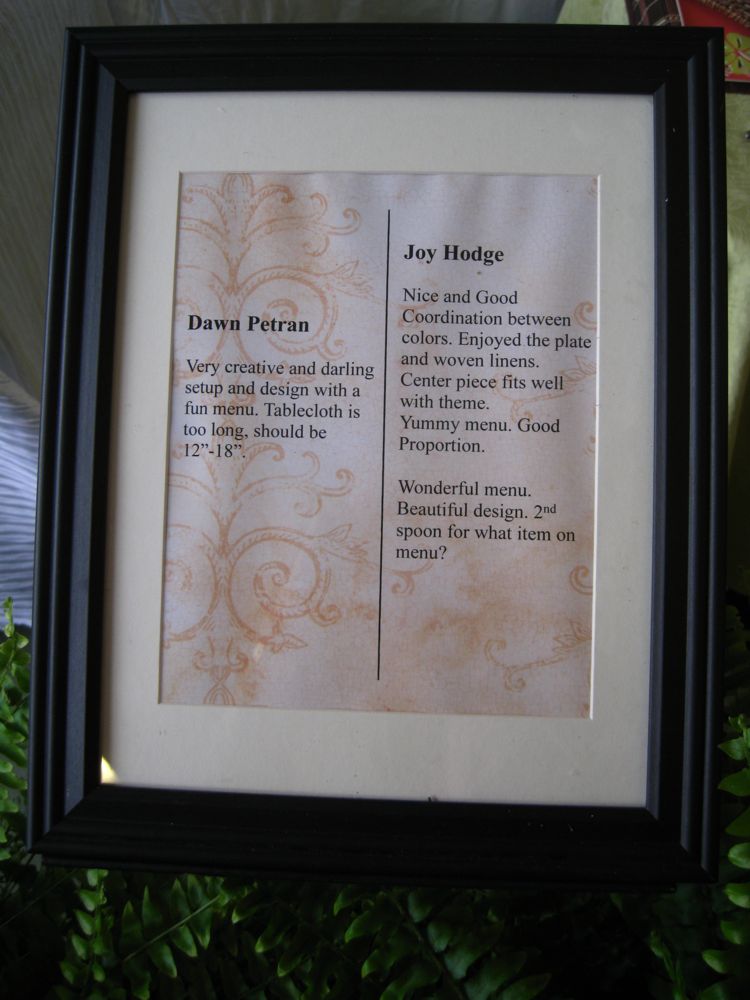 Dawn Petran
Very creative and darling
setup and design with a
fun menu. Tablecloth is
too long, should be
12”-18”.
Joy Hodge
Nice and Good
Coordination between
colors. Enjoyed the plate
and woven linens.
Center piece fits well
with theme.
Yummy menu. Good
Proportion.
Wonderful menu.
Beautiful design. 2nd
spoon for what item on
menu?